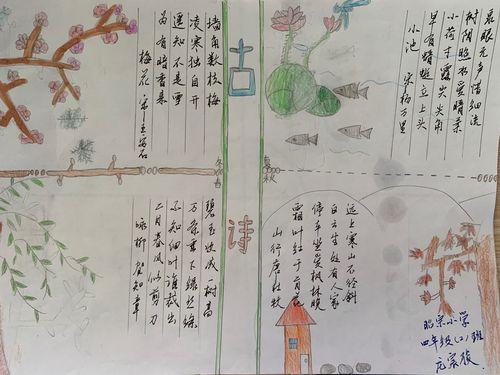 古诗
墙角数枝梅
凌寒独自开
遥知不是雪
为有暗香来
梅花 宋 王安石
泉眼无声惜细流
树阴照水爱晴柔
小荷才露尖尖角
早有蜻蜓立上头
小池 宋杨万里
冬春
夏秋
碧玉妆成一树高
万条垂下绿丝绦
不知细叶谁裁出
二月春风似剪刀
咏柳 贺知章
远上寒山石径斜
白云生处有人家
停车坐爱枫林晚
霜叶红于二月花
山行 唐 杜牧
小学
四年级(2)班